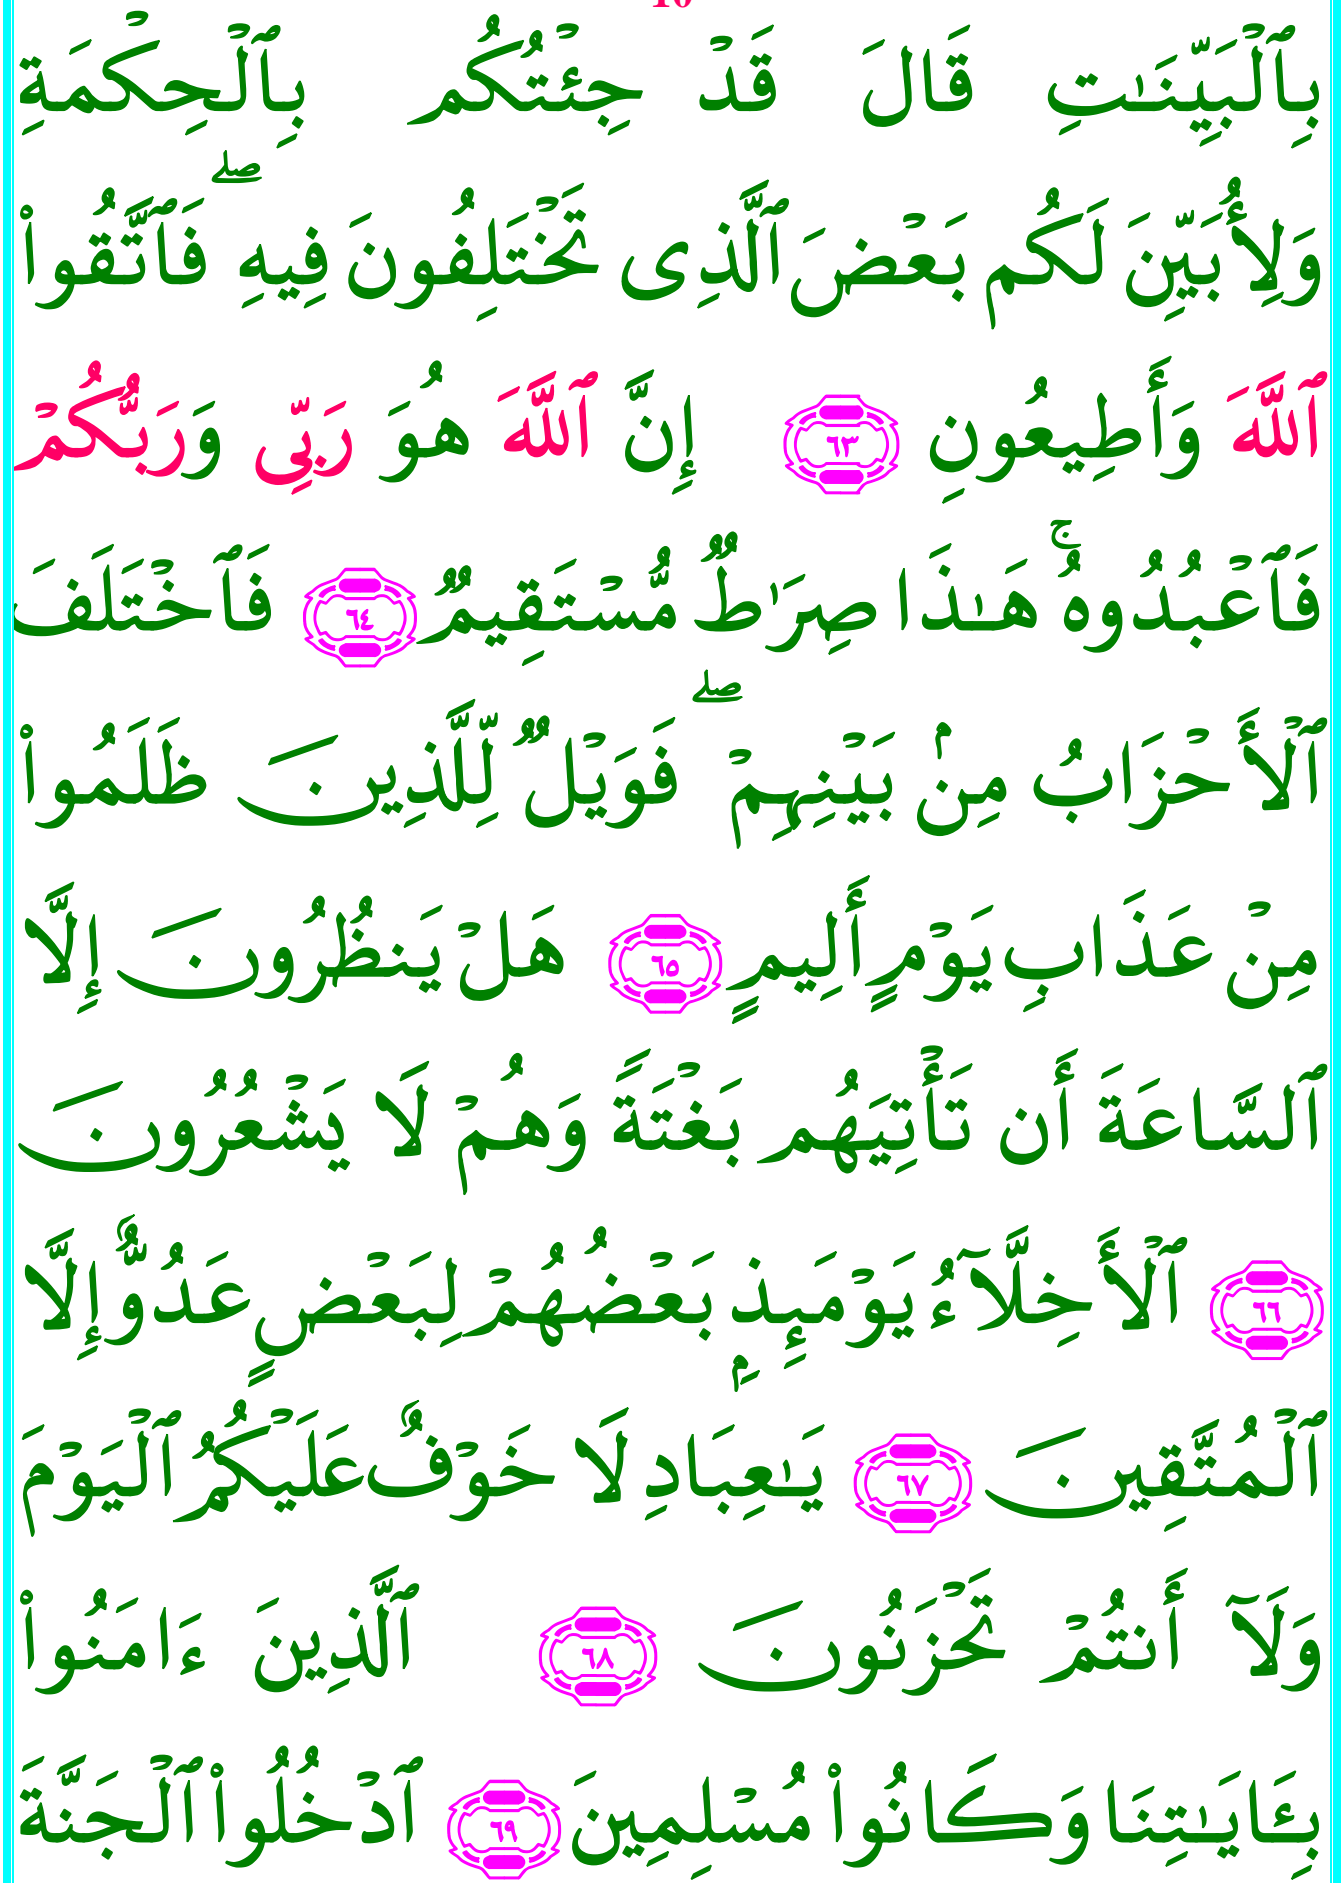 بِٱلْبَيِّنَـٰتِ قَالَ قَدْ جِئْتُكُم بِٱلْحِكْمَةِ
وَلِأُبَيِّنَ لَكُم بَعْضَ ٱلَّذِى تَخْتَلِفُونَ فِيهِ ۖ فَٱتَّقُوا۟
ٱللَّهَ وَأَطِيعُونِ ٦٣ إِنَّ ٱللَّهَ هُوَ رَبِّى وَرَبُّكُمْ
فَٱعْبُدُوهُ ۚ هَـٰذَا صِرَٰطٌ مُّسْتَقِيمٌ ٦٤ فَٱخْتَلَفَ
ٱلْأَحْزَابُ مِنۢ بَيْنِهِمْ ۖ فَوَيْلٌ لِّلَّذِينَ ظَلَمُوا۟
مِنْ عَذَابِ يَوْمٍ أَلِيمٍ ٦٥ هَلْ يَنظُرُونَ إِلَّا
ٱلسَّاعَةَ أَن تَأْتِيَهُم بَغْتَةً وَهُمْ لَا يَشْعُرُونَ
٦٦ ٱلْأَخِلَّآءُ يَوْمَئِذٍۭ بَعْضُهُمْ لِبَعْضٍ عَدُوٌّ إِلَّا
ٱلْمُتَّقِينَ ٦٧ يَـٰعِبَادِ لَا خَوْفٌ عَلَيْكُمُ ٱلْيَوْمَ
وَلَآ أَنتُمْ تَحْزَنُونَ ٦٨ ٱلَّذِينَ ءَامَنُوا۟
بِـَٔايَـٰتِنَا وَكَانُوا۟ مُسْلِمِينَ ٦٩ ٱدْخُلُوا۟ ٱلْجَنَّةَ